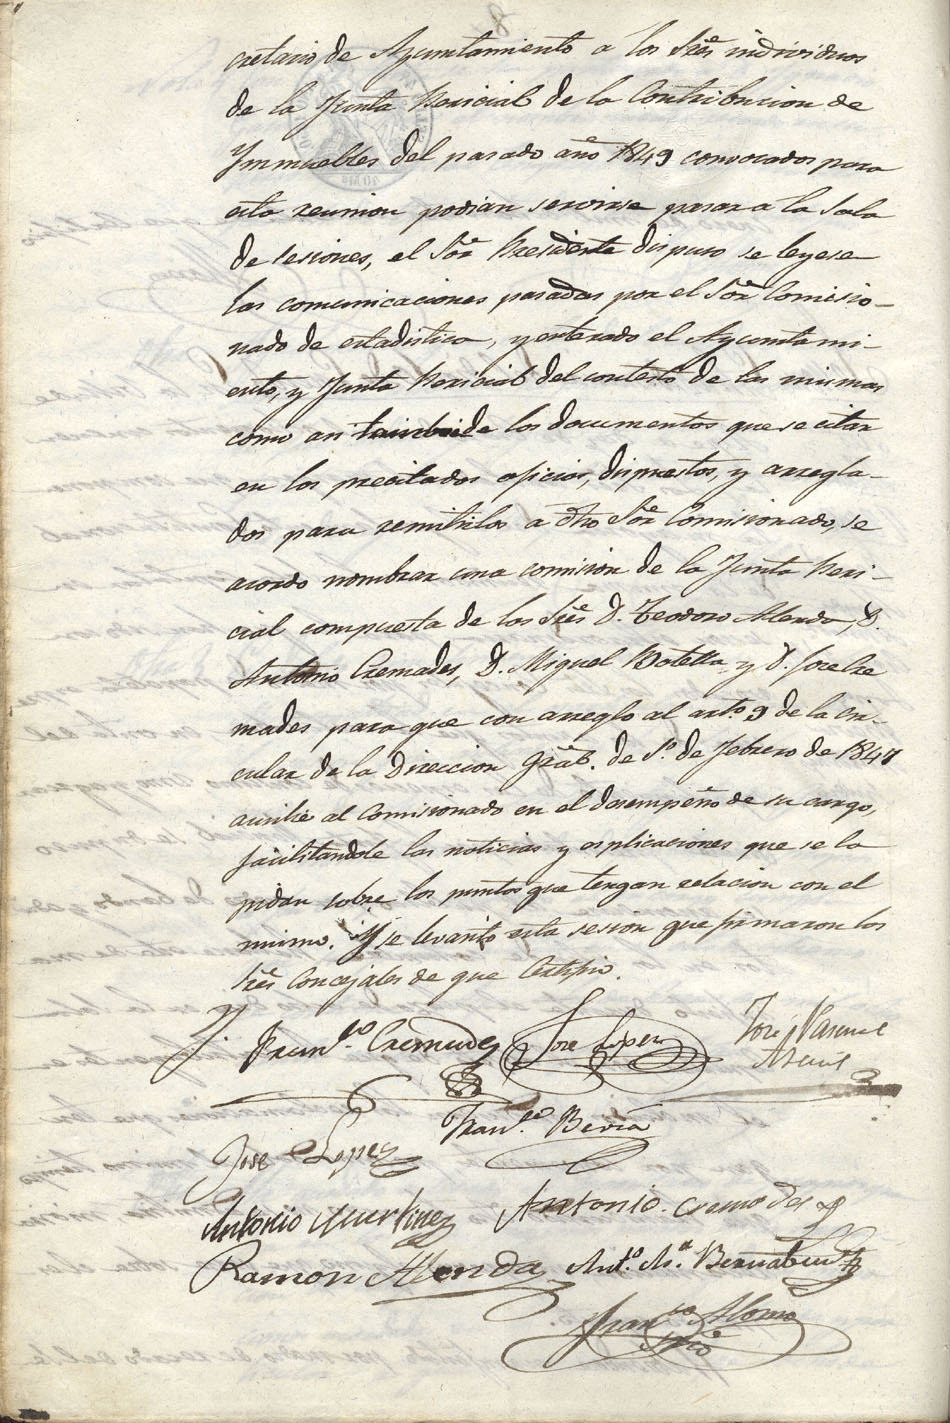 cretario de Ayuntamiento a los Sres individuos
de la Junta Pericial de la Contribucion de
Ynmuebles del pasado año 1849 convocados para
esta reunion podian servirse pasar a la Sala
de sesiones, el Sor Presidente dispuso se leyese
las comunicaciones pasadas por el Sor Comisio-
nado de estadistica, y enterado el Ayuntami-
ento, y Junta Pericial del contesto de las mismas
como asi tambien de los documentos que se citan
en los precitados oficios, dispuestos, y arregla-
dos para remitirlos a dho Sor Comisionado, se
acordo nombrar una comision de la Junta Peri-
cial compuesta de los Sres D. Teodoro Alenda, D.
Antonio Cremades, D. Miguel Botella y D. Jose Cre
mades para que con arreglo al arto. 9 de la cir-
cular de la Direccion Gral. de 1o. de Febrero de 1847
ausilie al Comisionado en el desempeño de su cargo,
facilitandole las noticias y esplicaciones que se la
pidan sobre los puntos que tengan relacion con el
mismo. Y se levantó esta sesion que firmaron los
Sres Concejales de que Certifico.
Franco. Cremades Jose Lopez José Pascual
Franco. Beviá
José Lopez
Antonio Martinez Antonio Cremades
Ramon Alenda Anto. Ma. Bernabeu
Franco Alonso
Srio